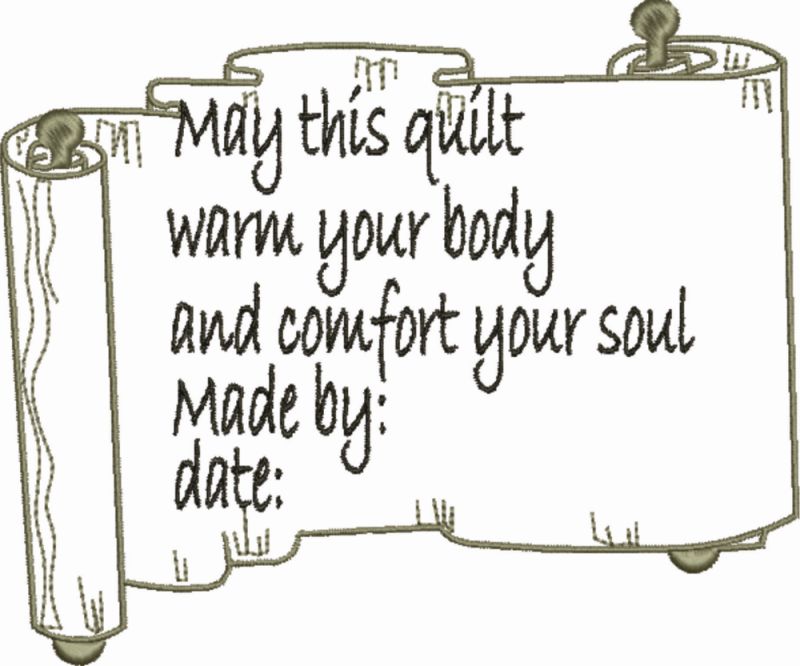 May this quilt
warm your body
and comfort your soul
Made by:
date: